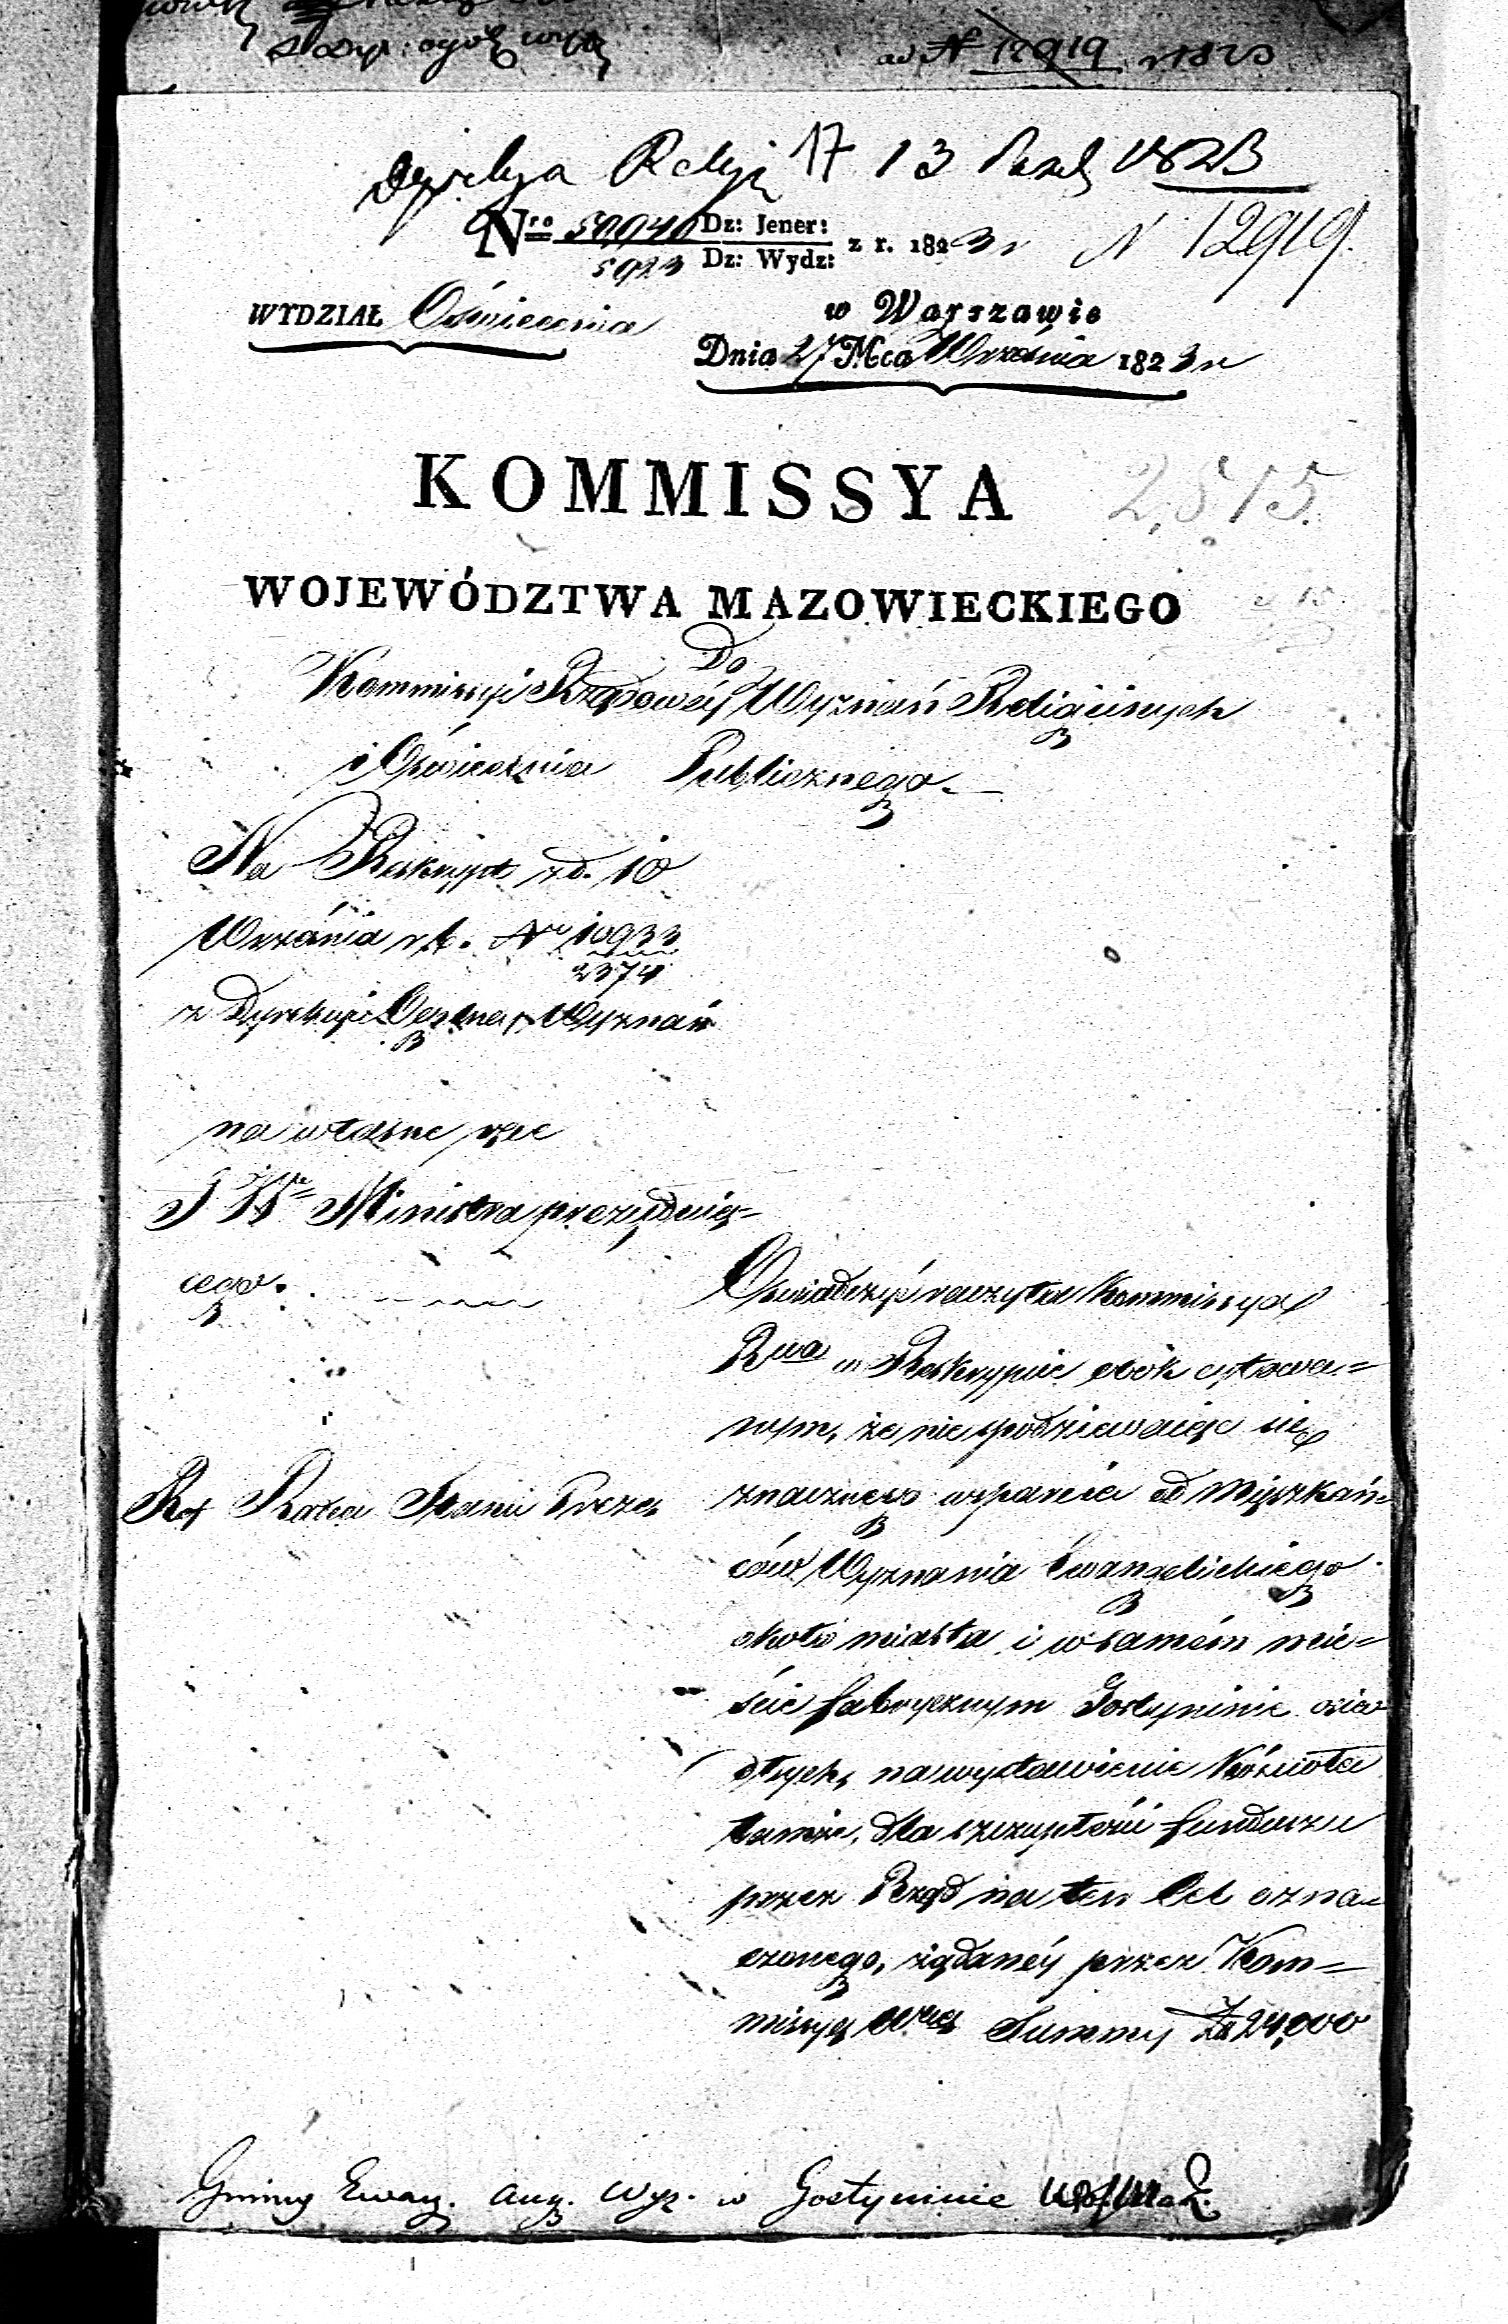 ad N 12919 r 1823
Religij 17 13 Paźd 1823
Nro 50,940 Dz: Jener:
5923 Dz: Wydz: z r. 1823 r N 12919.
WYDZIAŁ Oświecenia
w Warszawie
Dnia 27 Mca Września 1823 r
KOMMISSYA
2,515.
WOJEWÓDZTWA MAZOWIECKIEGO
Do
Kommissyi Rządowéy Wyznań Religiinych
i Oświecenia Publicznego.
Na Reskrypt z d. 10
Września r. b. Nro 10933
2374
z Dyrekcyi Wyznań
na własne ręce
J W Ministra prezyduią=
cego.
Oświadczyć raczyła Kommissya
Rwa w Reskrypcie obok cytowa=
nym, że nie spodziewaiąc się
Ref Radca Prezes
znacznego wsparcia od Mięszkań=
ców Wyznania Ewangelickiego
około miasta i w samém mie=
ście fabrycznym Gostyninie osia
dłych, na wystawienie Kościoła
tamże, dla szczupłości funduszu
przez Rząd na ten Cel ozna
czonego, żądanéy przez Kom=
missyą Wką Summy Zł 24,000
Gminy Ewang. aug. wyz. w Gostyninie